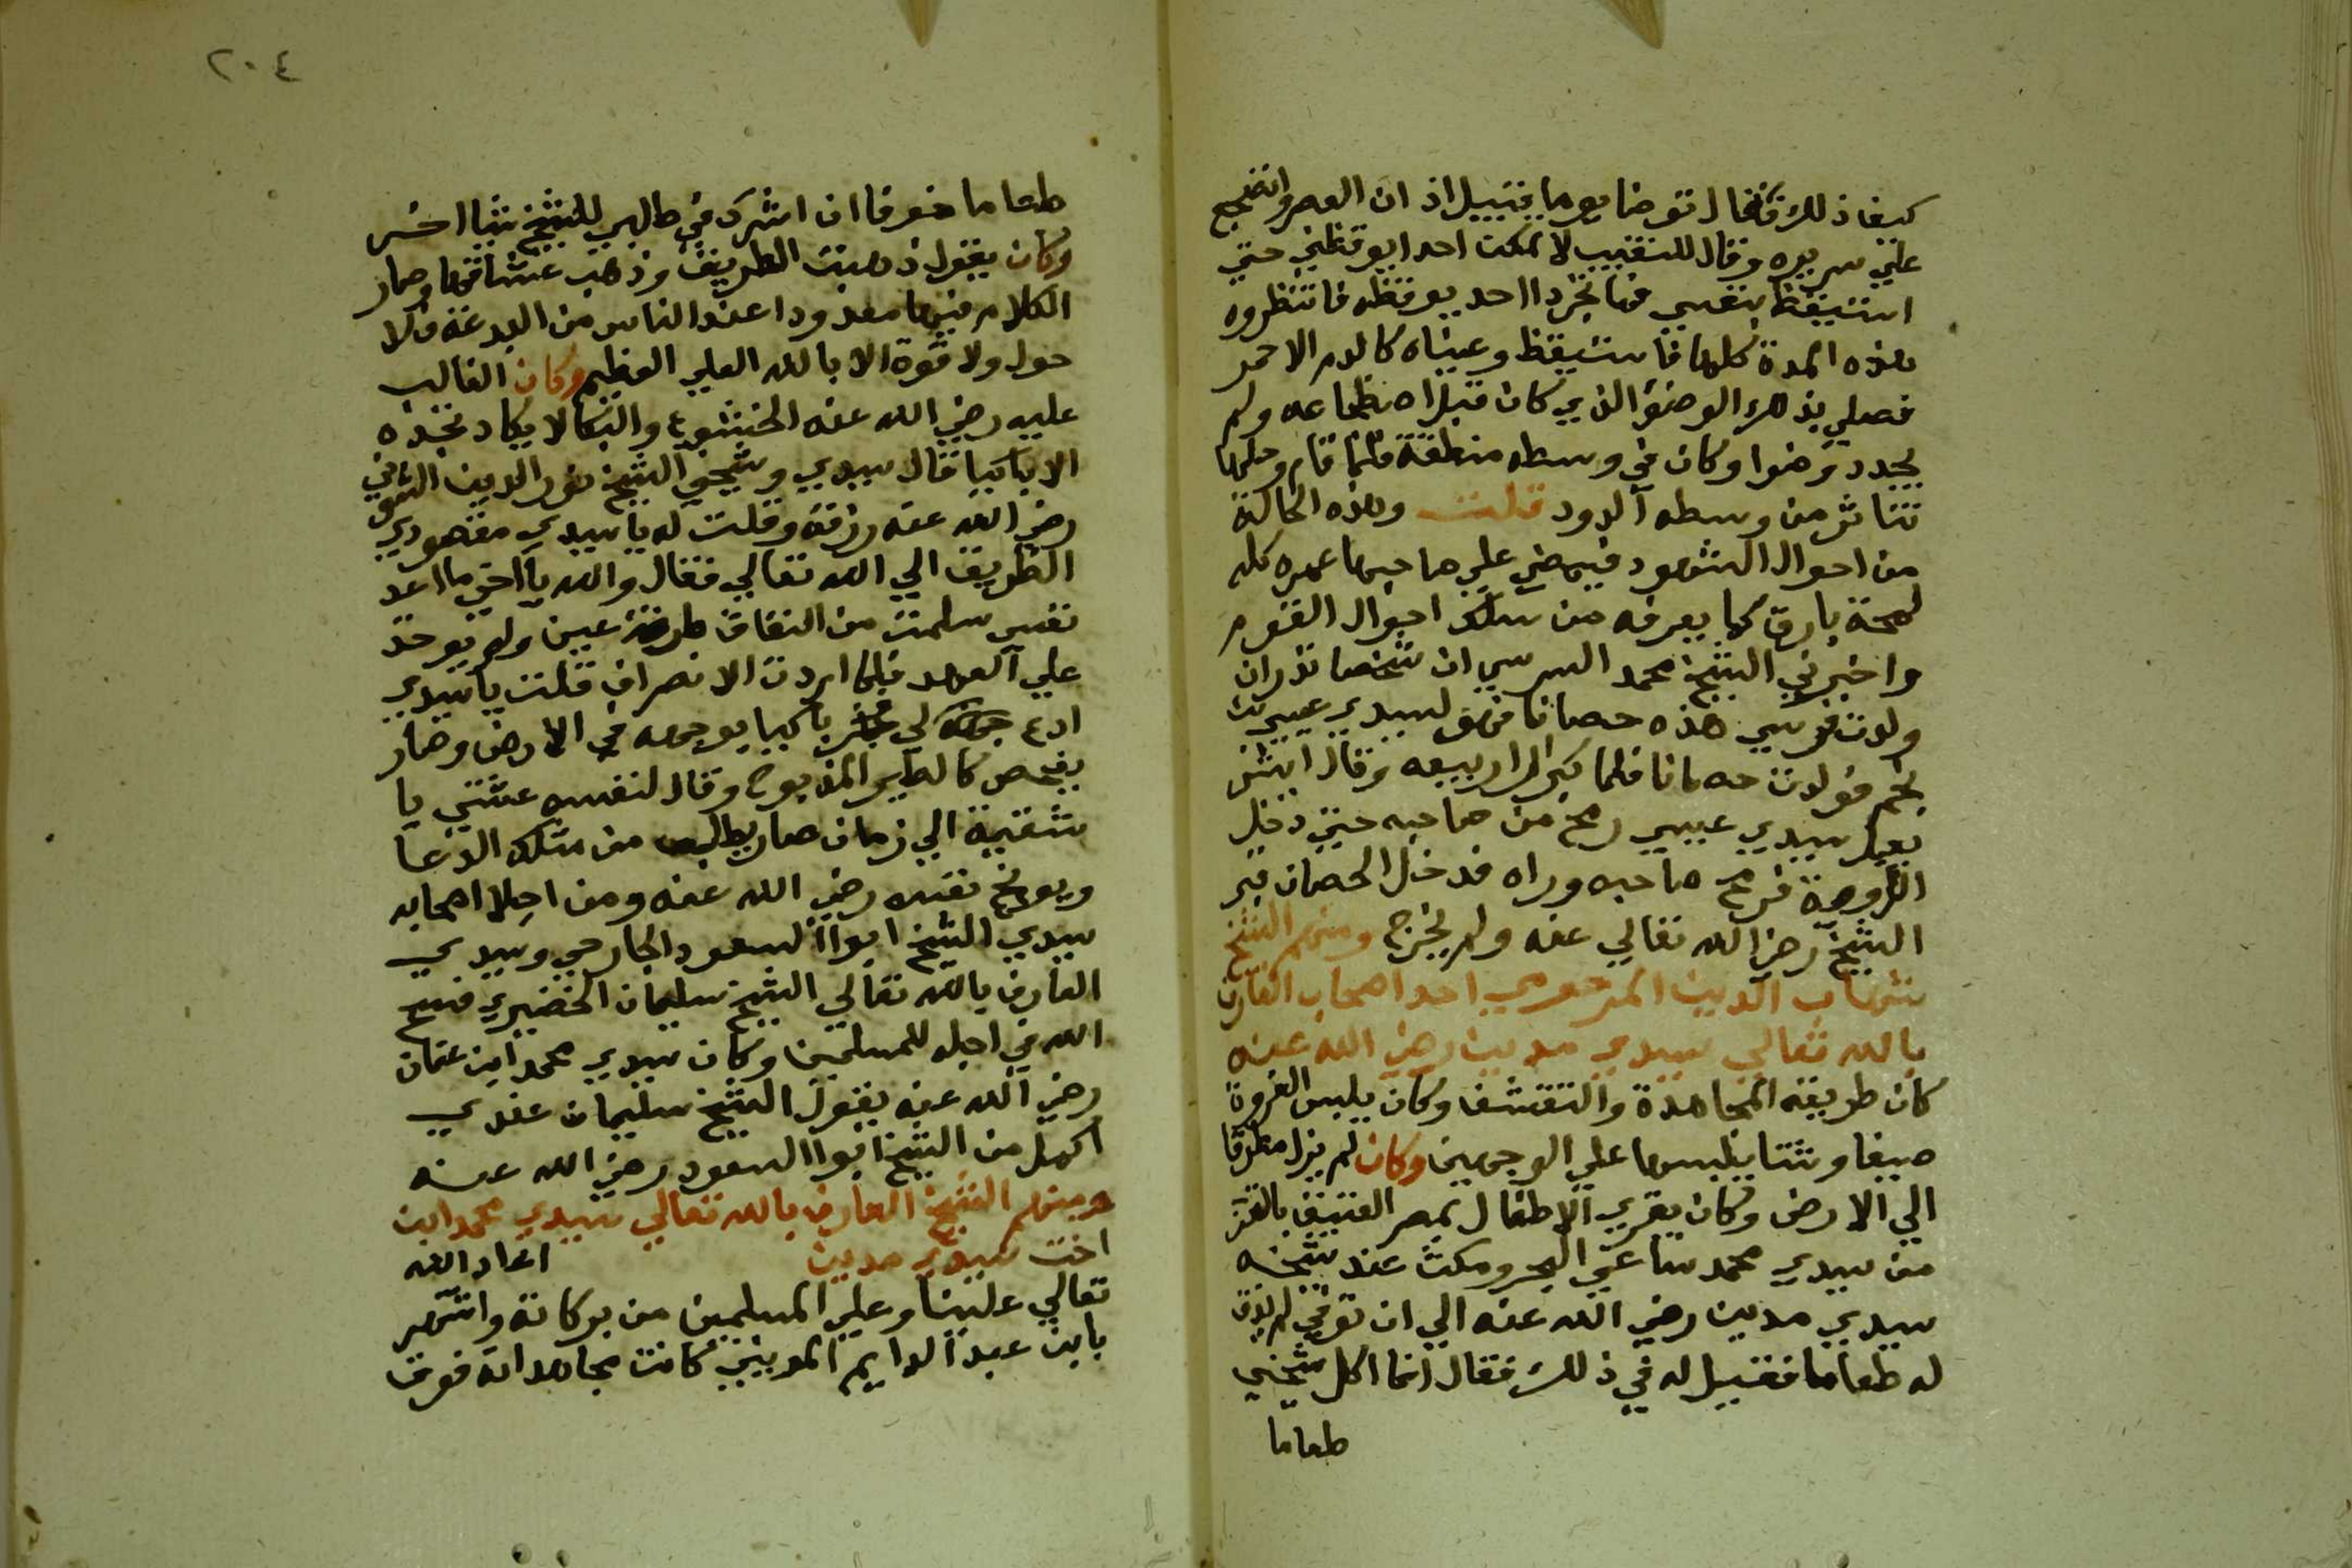 كيف ذلك فقال توضا يوما قبيل اذان العصر وانضجع
علي سريره وقال للنقيب لا تمكن احدا يوقظني حتي
استيقظ بنفسي فما تجرا احد يوقظه فانتظروه
هذه المدة كلها فاستيقظ وعيناه كالدم الاحمر
فصلي بذلك الوضو الذي كان قبل اضطجاعه ولم
يجدد وضوا وكان في وسطه منطقة فلما قام وحلها
تناثر من وسطه الدود قلت وهذه الحالة
من احوال الشهود فيمضي علي صاحبها عمره كله
لمحة بارق كما يعرفه من سلك احوال القوم
واخبرني الشيخ محمد السرسي ان شخصا نذر ان
ولدت فرسي هذه حصانا فهو لسيدي عيسي بن
نجم فولدت حصانا فلما كبر اراد بيعه وقال ايش
يعمل سيدي عيسي رمح من صاحبه حتي دخل
الروضة فرمح صاحبه وراه فدخل الحصان قبر
الشيخ رضي الله تعالي عنه ولم يخرج ومنهم الشيخ
شهاب الدين المرحومي احد اصحاب العارف
بالله تعالي سيدي مدين رضي الله عنه
كان طريقه المجاهدة والتقشف وكان يلبس الفروة
صيفا وشتا يلبسها علي الوجهين وكان لم يزل مطرقا
الي الارض وكان يقري الاطفال بمصر العتيق بالقرب
من سيدي محمد ساعي البحر ومكث عند شيخه
سيدي مدين رضي الله عنه الي ان توفي لم يذق
له طعاما فقيل له في ذلك فقال انما اكل شيخي
طعاما
٢٠٤
طعاما خوفا ان اشرك في طلبي للشيخ شيا اخر
وكان يقول ذهبت الطريق وذهب عشاقها وصار
الكلام فيها معدودا عند الناس من البدعة ولا
حول ولا قوة الا بالله العلي العظيم وكان الغالب
عليه رضي الله عنه الخشوع والبكا لا يكاد تجده
الا باكيا قال سيدي وشيخي الشيخ نور الدين الشوني
رضي الله عنه زرته وقلت له يا سيدي مقصودي
الطريق الي الله تعالي فقال والله يا اخي ما اعد
نفسي سلمت من النفاق طرفة عين ولم يوخذ
علي العهد فلما اردت الانصراف قلت يا سيدي
ادع لي فخر باكيا بوجهه في الارض وصار
يفحص كالطير المذبوح وقال لنفسه عشتي يا
شقية الي زمان صار يطلب من مثلك الدعا
ويوبخ نفسه رضي الله عنه ومن اجلا اصحابه
سيدي الشيخ ابو السعود الجارحي وسيدي
العارف بالله تعالي الشيخ سليمان الخضيري فسح
الله في اجله للمسلمين وكان سيدي محمد ابن عنان
رضي الله عنه يقول الشيخ سليمان عندي
اكمل من الشيخ ابوا السعود رضي الله عنه
ومنهم الشيخ العارف بالله تعالي سيدي محمد ابن
اخت سيدي مدين اعاد الله
تعالي علينا وعلي المسلمين من بركاته واشتهر
بابن عبد الدايم المديني كانت مجاهداته فوق